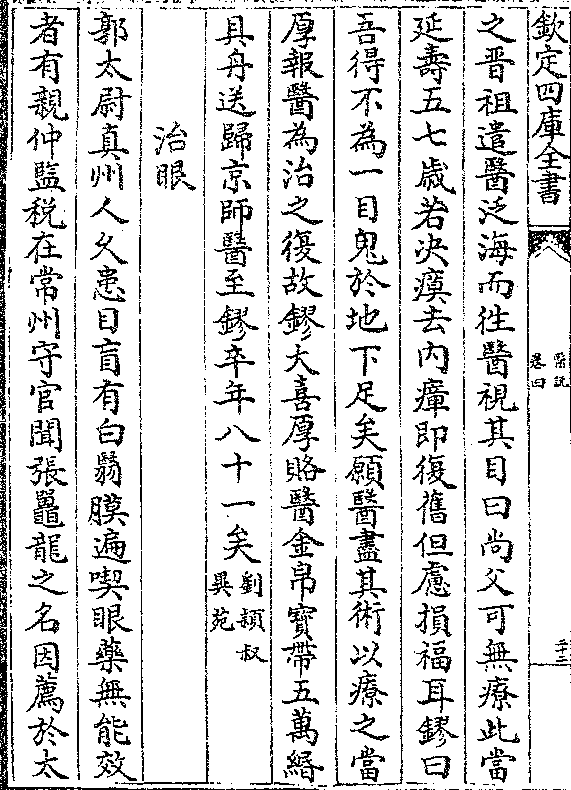 欽定四庫全書
醫說
卷四
二十三
之晋祖遣醫泛海而往醫視其目曰尚父可無療此當
延壽五七歲若决瘼去内瘴即復舊但慮損福耳鏐曰
吾得不為一目鬼於地下足矣願醫盡其術以療之當
厚報醫為治之復故鏐大喜厚賂醫金帛寶帶五萬緡
具舟送歸京師醫至鏐卒年八十一矣劉頴叔異苑
治眼
郭太尉真州人久患目盲有白翳膜遍喫眼藥無能效
者有親仲監税在常州守官聞張鼉龍之名因薦於太